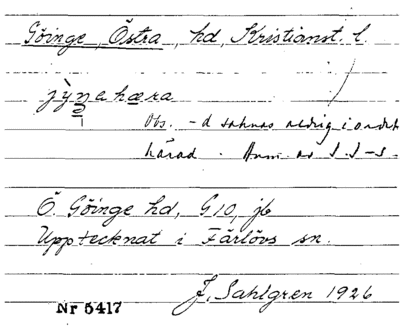 Göinge, Östra, hd, Kristianst. l.
jỳŋehæra
Obs. -d saknas aldrig i ordet
härad. Anm. av J. S-n.
Ö. Göinge hd, G10, jb
Upptecknat i Färlövs sn.
J. Sahlgren 1926
Nr 5417